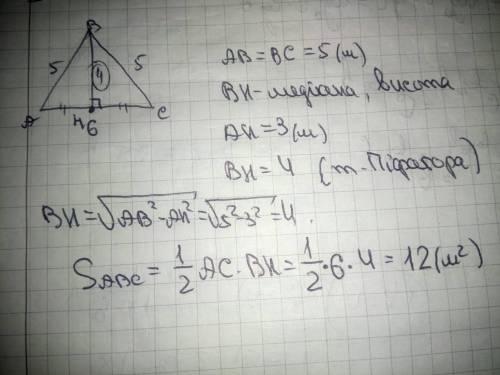 B
5 4 5
A H 6 C
AB = BC = 5 (м)
BH - медіана, висота
AH = 3 (м)
BH = 4 (т. Піфагора)
BH = √AB² - AH² = √5²-3² = 4.
S_ABC = 1/2 AC · BH = 1/2 · 6 · 4 = 12 (м²)